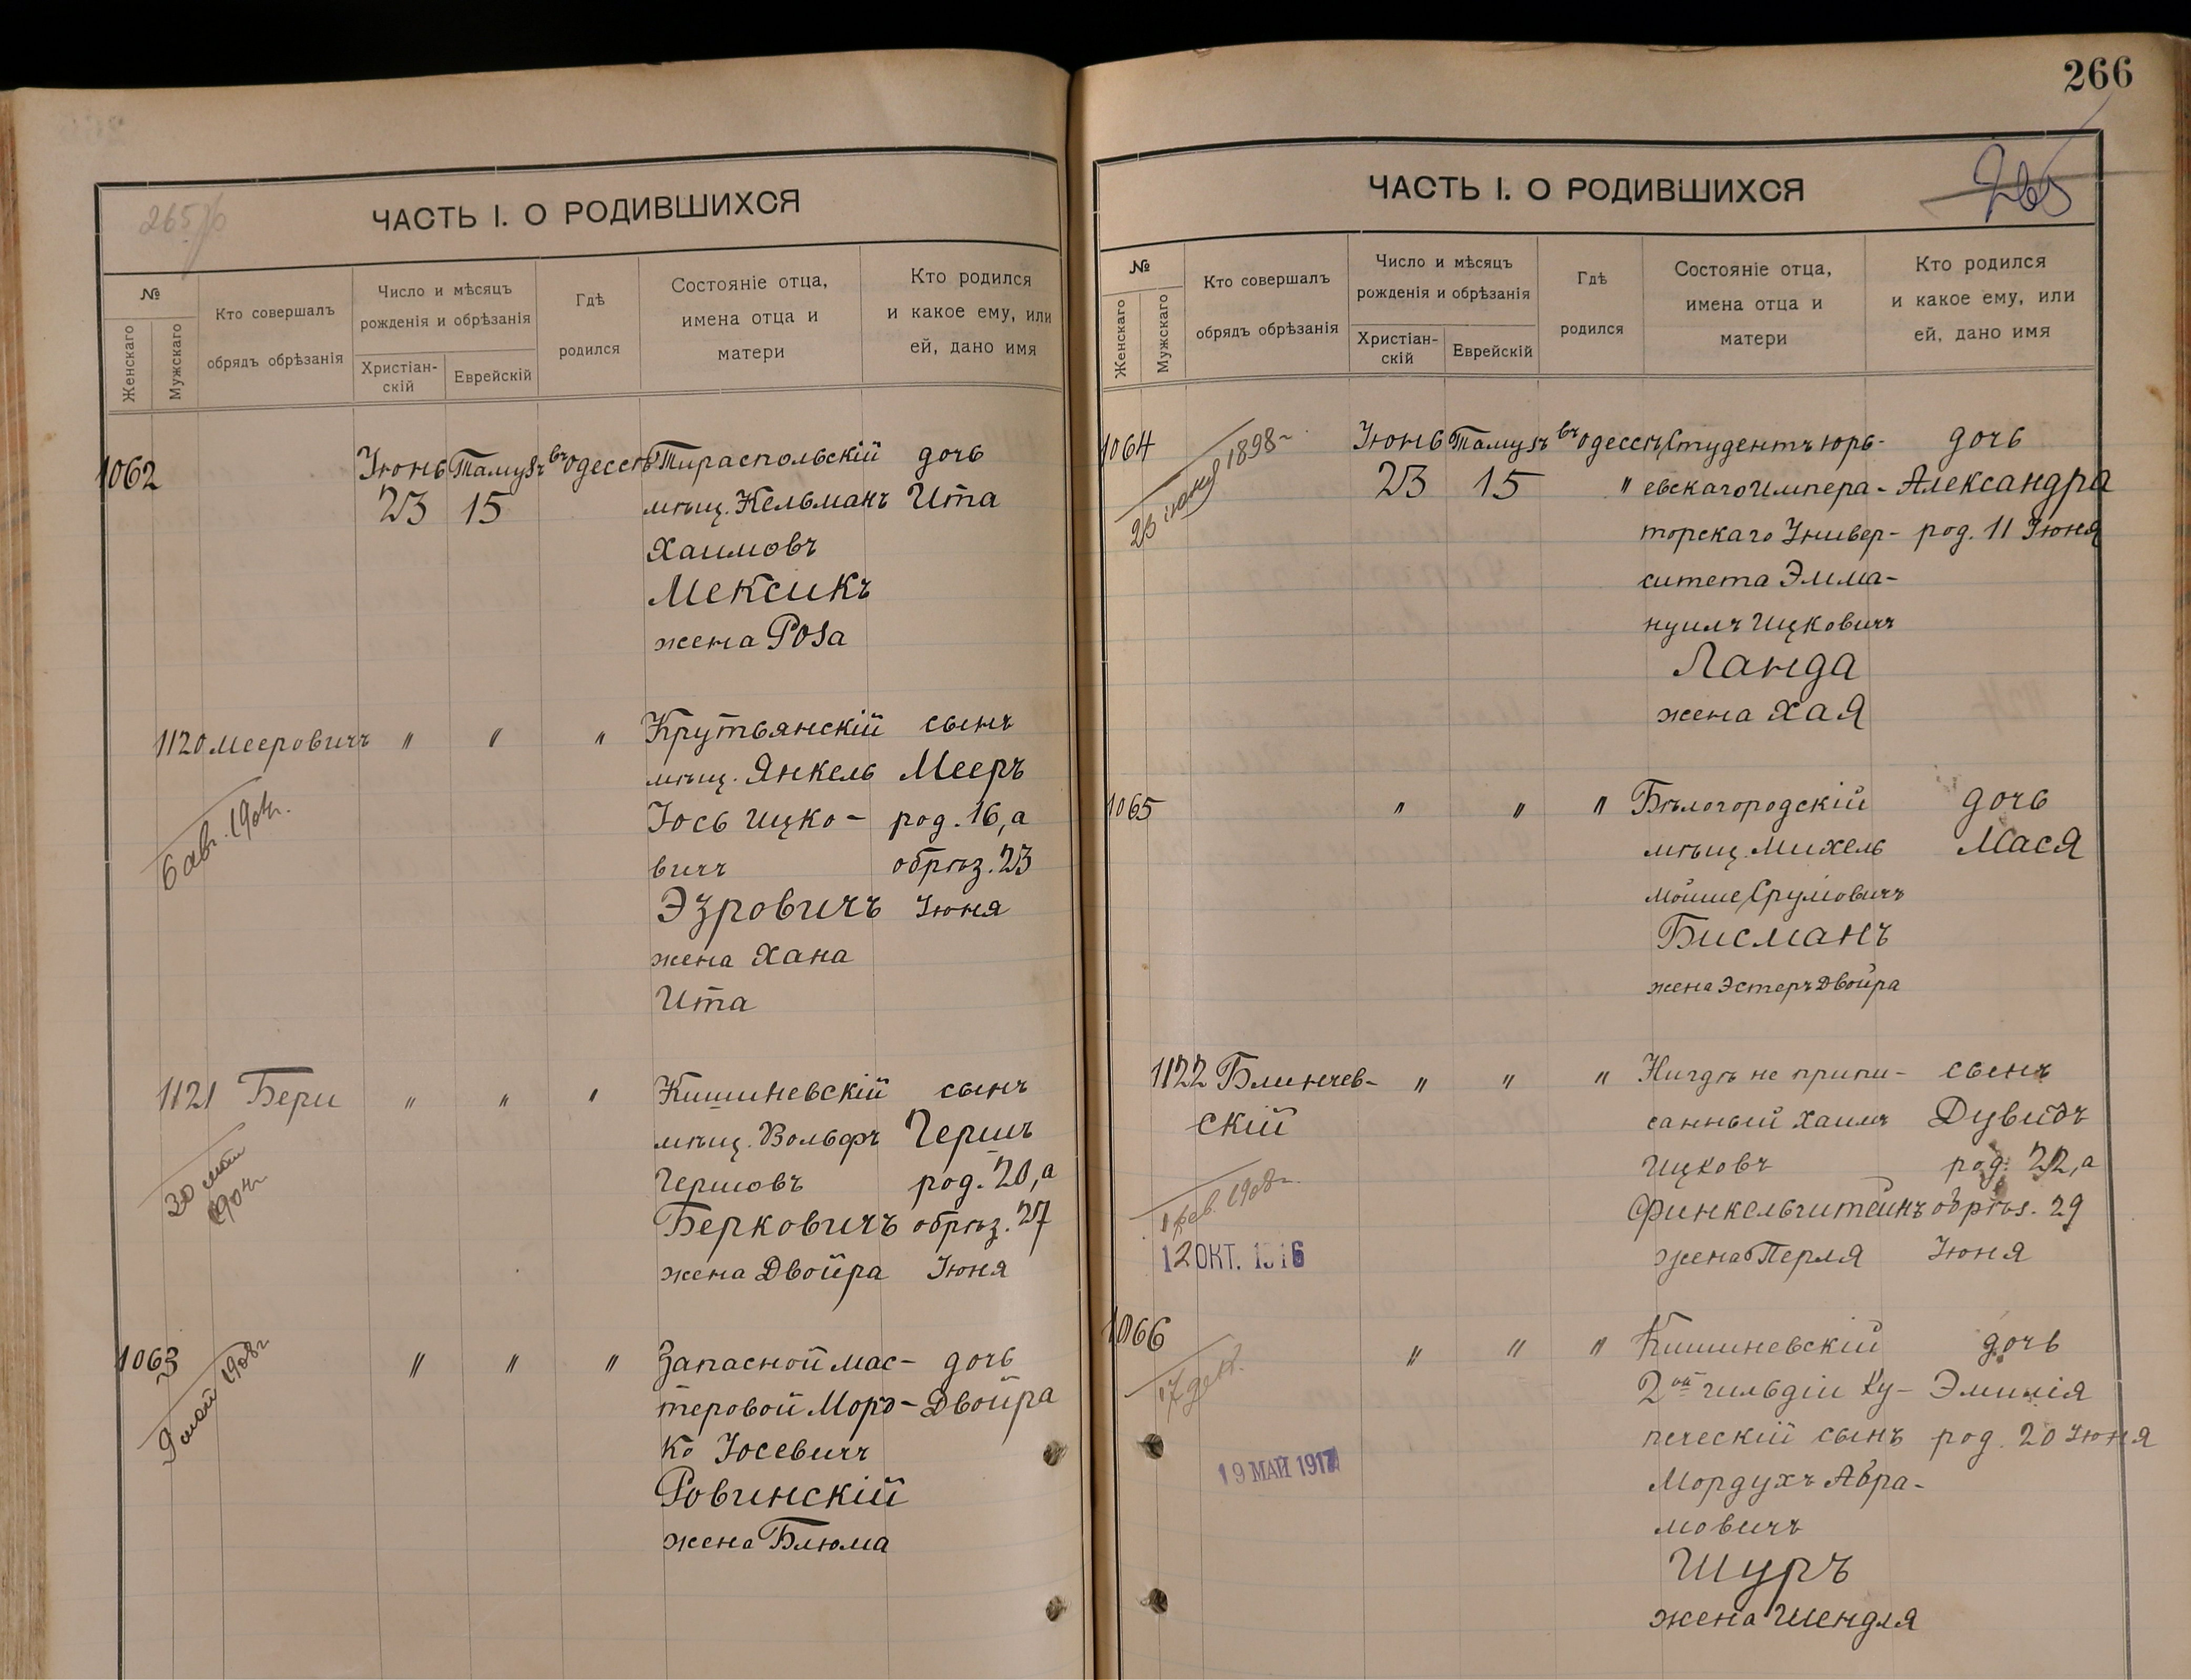 ЧАСТЬ I. О РОДИВШИХСЯ
№
Женскаго
Мужскаго
Кто совершалъ
обрядъ обрѣзанія
Число и мѣсяцъ
рожденія и обрѣзанія
Христіан-
скій
Еврейскій
Гдѣ
родился
Состояніе отца,
имена отца и
матери
Кто родился
и какое ему, или
ей, дано имя
1062
Іюнь Тамузъ въ Одессѣ Тираспольскій дочь
23 15 мѣщ. Кельманъ Ита
Хаимовъ
Мексикъ
жена Роза
1120 Мееровичъ " " " Крутьянскій сынъ
мѣщ. Янкель Мееръ
6 авг. 1904 г.
Іось Ицко- род. 16, а
вичъ обрѣз. 23
Эзровичъ Іюня
жена Хана
Ита
1121 Бери " " " Кишиневскій сынъ
мѣщ. Вольфъ Гершъ
30 1904 г.
Гершовъ род. 20, а
Берковичъ обрѣз. 27
жена Двойра Іюня
1063 " " " Запасной мас- дочь
9 май 1908 г.
теровой Мордко- Двойра
Іосевичъ
Ровинскій
жена Блюма
266
265
ЧАСТЬ I. О РОДИВШИХСЯ
№
Женскаго
Мужскаго
Кто совершалъ
обрядъ обрѣзанія
Число и мѣсяцъ
рожденія и обрѣзанія
Христіан-
скій
Еврейскій
Гдѣ
родился
Состояніе отца,
имена отца и
матери
Кто родился
и какое ему, или
ей, дано имя
1064 Іюнь Тамузъ въ Одессѣ Студентъ Юрь- дочь
23 1898
23 15 " евскаго Импера- Александра
торскаго Универ- род. 11 Іюня
ситета Эмма-
нуилъ Ицковичъ
Ланда
жена Хая
1065 " " " Бѣлогородскій дочь
мѣщ. Михель Мася
Мойше Срумовичъ
Бисманъ
жена Эстеръ Двойра
1122 Блинчев- " " " Нигдѣ не припи- сынъ
скій санный Хаимъ Дувидъ
Ицковъ род. 22, а
1 фев. 1908 г.
Финкельштейнъ обрѣз. 29
12 ОКТ. 1916
жена Перля Іюня
1066 " " " Кишиневскій дочь
17 дек.
2ой гильдіи Ку- Эмилія
печескій сынъ род. 20 Іюня
19 МАЙ 1917
Мордухъ Абра-
мовичъ
Шуръ
жена Шендля